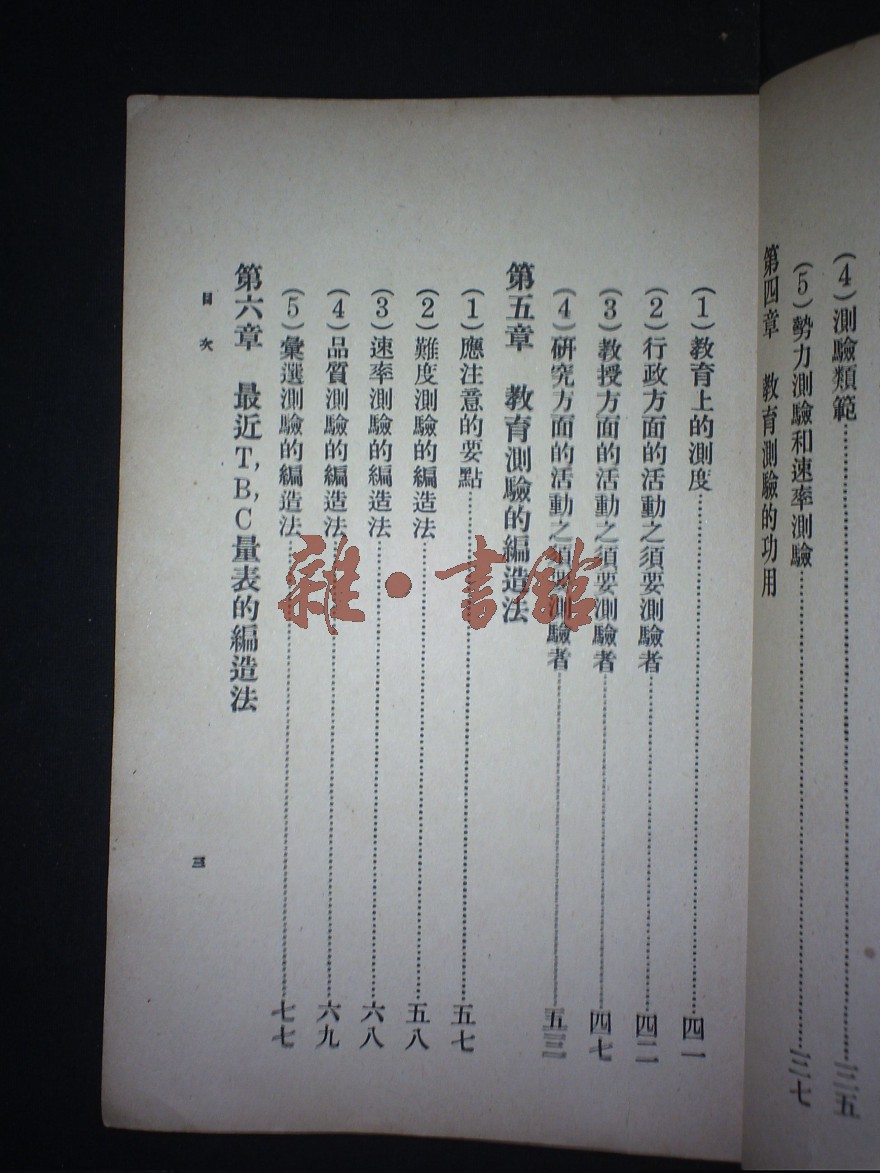 (4)測驗類範……三五
(5)勢力測驗和速率測驗……三七
第四章　教育測驗的功用
(1)教育上的測度……四一
(2)行政方面的活動之須要測驗者……四二
(3)教授方面的活動之須要測驗者……四七
(4)研究方面的活動之須要測驗者……五三
第五章　教育測驗的編造法
(1)應注意的要點……五七
(2)難度測驗的編造法……五八
(3)速率測驗的編造法……六八
(4)品質測驗的編造法……六九
(5)彙選測驗的編造法……七七
第六章　最近T,B,C量表的編造法
目次
三
雜·書館